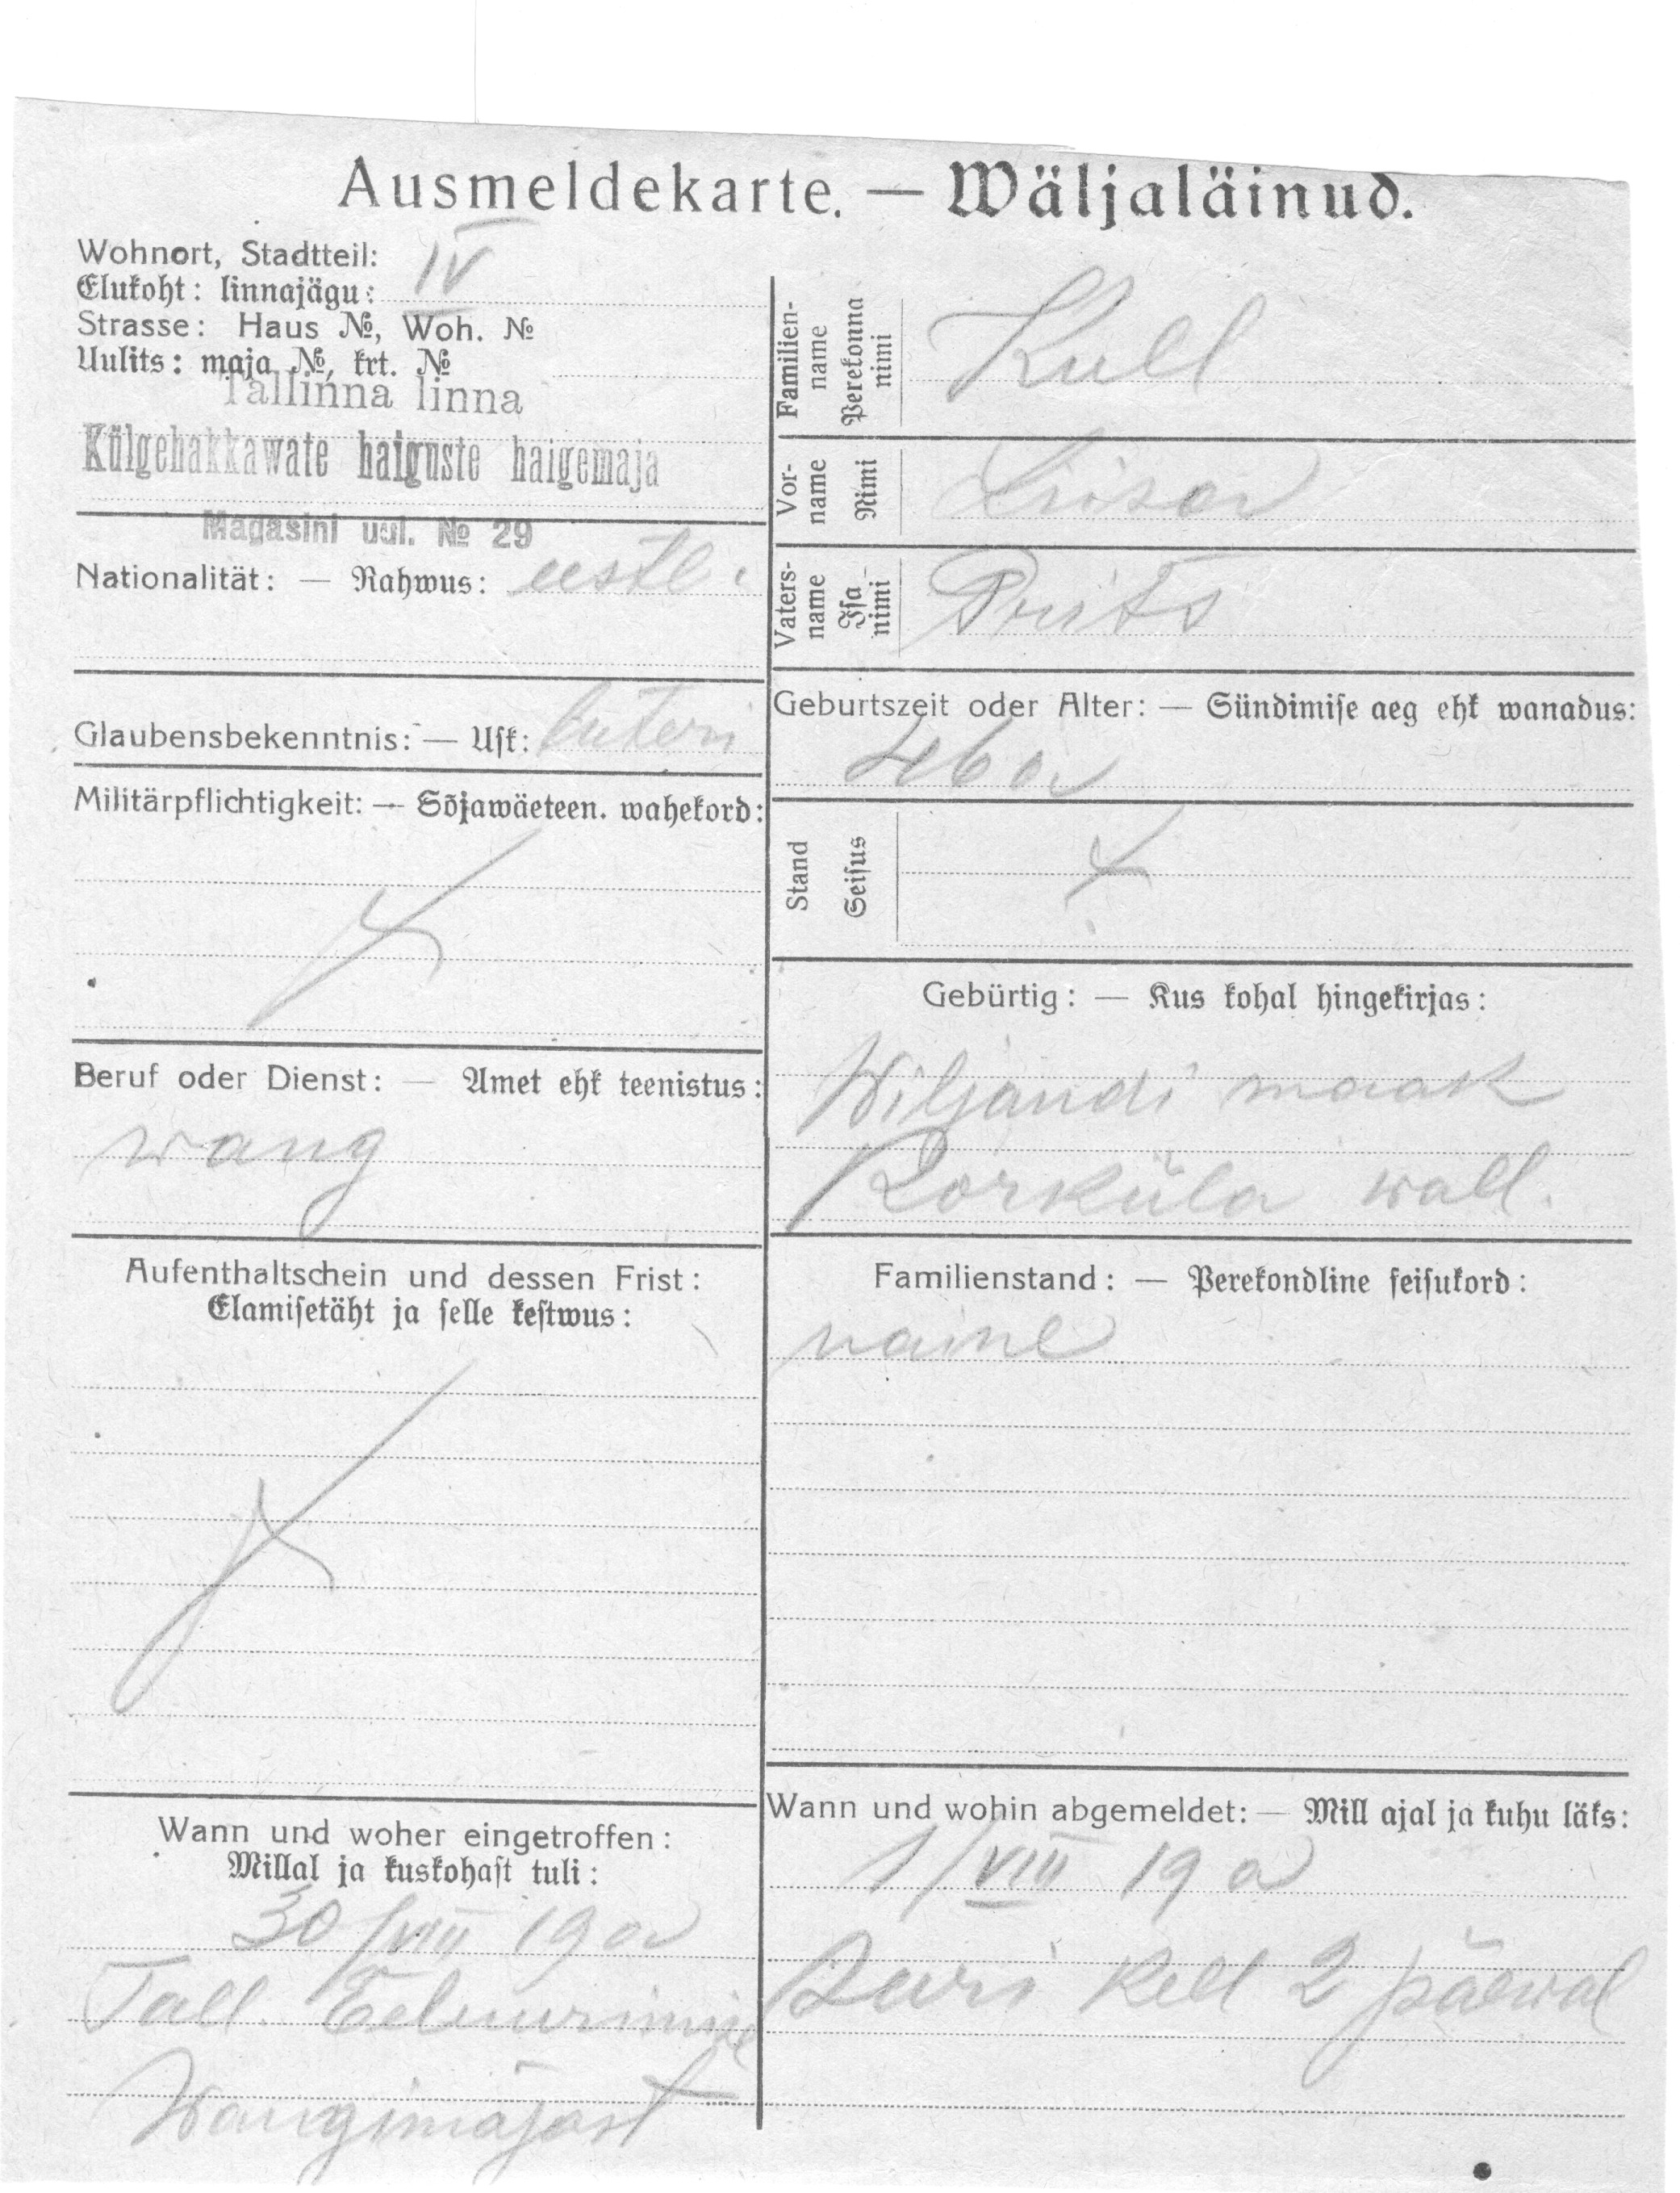 Ausmeldekarte. — Wäljaläinud.
Wohnort, Stadtteil:
Elukoht: linnajägu: IV
Strasse: Haus №, Woh. №
Uulits: maja №, krt. №
Tallinna linna
Külgehakkawate haiguste haigemaja
Magasini uul. № 29
Nationalität: — Rahwus: eestl.
Glaubensbekenntnis: — Usk: luteri
Militärpflichtigkeit: — Sõjawäeteen. wahekord:
Beruf oder Dienst: — Amet ehk teenistus:
wang
Aufenthaltschein und dessen Frist:
Elamisetäht ja selle kestwus:
Wann und woher eingetroffen:
Millal ja kuskohast tuli:
30/VIII 19 a
Tall. Eeluurimise
Wangimajast
Familien-
name
Perekonna
nimi
Kull
Vor-
name
Nimi
Liisa
Vaters-
name
Isa
nimi
Prits
Geburtszeit oder Alter: — Sündimise aeg ehk wanadus:
46 a
Stand
Seisus
Gebürtig: — Kus kohal hingekirjas:
Wiljandi maak
Rorküla wall.
Familienstand: — Perekondline seisukord:
naine
Wann und wohin abgemeldet: — Mill ajal ja kuhu läks:
1/VIII 19 a
Suri kell 2 päewal